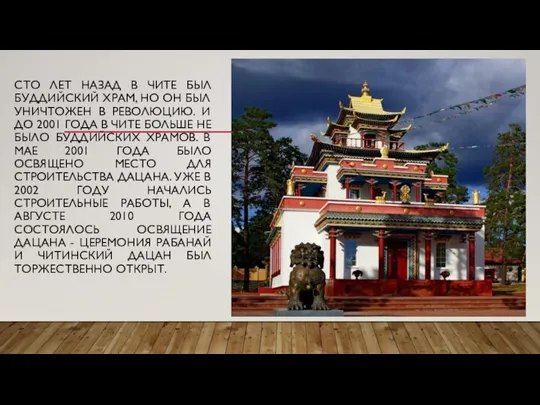 СТО ЛЕТ НАЗАД В ЧИТЕ БЫЛ
БУДДИЙСКИЙ ХРАМ, НО ОН БЫЛ
УНИЧТОЖЕН В РЕВОЛЮЦИЮ. И
ДО 2001 ГОДА В ЧИТЕ БОЛЬШЕ НЕ
БЫЛО БУДДИЙСКИХ ХРАМОВ. В
МАЕ 2001 ГОДА БЫЛО
ОСВЯЩЕНО МЕСТО ДЛЯ
СТРОИТЕЛЬСТВА ДАЦАНА. УЖЕ В
2002 ГОДУ НАЧАЛИСЬ
СТРОИТЕЛЬНЫЕ РАБОТЫ, А В
АВГУСТЕ 2010 ГОДА
СОСТОЯЛОСЬ ОСВЯЩЕНИЕ
ДАЦАНА - ЦЕРЕМОНИЯ РАБАНАЙ
И ЧИТИНСКИЙ ДАЦАН БЫЛ
ТОРЖЕСТВЕННО ОТКРЫТ.